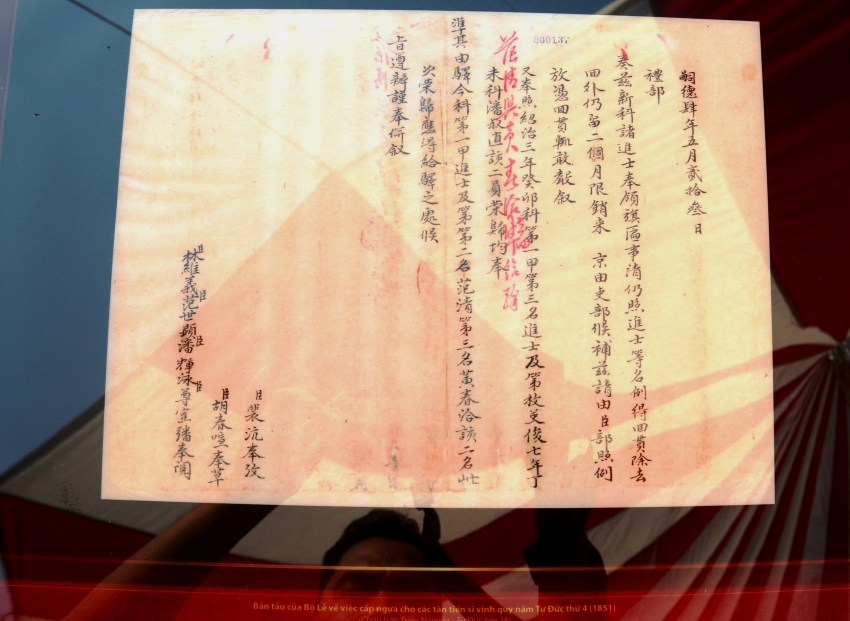 嗣德肆年五月貳拾叁日
禮部
奏茲新科諸進士奉領旗匾事清仍照進士等名例得回貫除去
回外仍留二個月限銷來 京由吏部候補茲請由臣部照例
放憑回貫輒敢聲叙
000137
又奉照紹治三年癸卯科第一甲第三名進士及第枚英俊七年丁
范清與黃春洽準給驛
未科潘叔直該二員榮歸均奉
準其由驛今科第一甲進士及第第二名范清第三名黃春洽該二名此
次榮歸應得給驛之處候
旨遵辦謹奉併叙
臣裴沆奉攷
臣胡春喧奉草
臣林維義臣范世顯臣潘輝泳臣尊室奉閱
Bản tấu của Bộ Lễ về việc cấp ngựa cho các tân tiến sĩ vinh quy năm Tự Đức thứ 4 (1851)